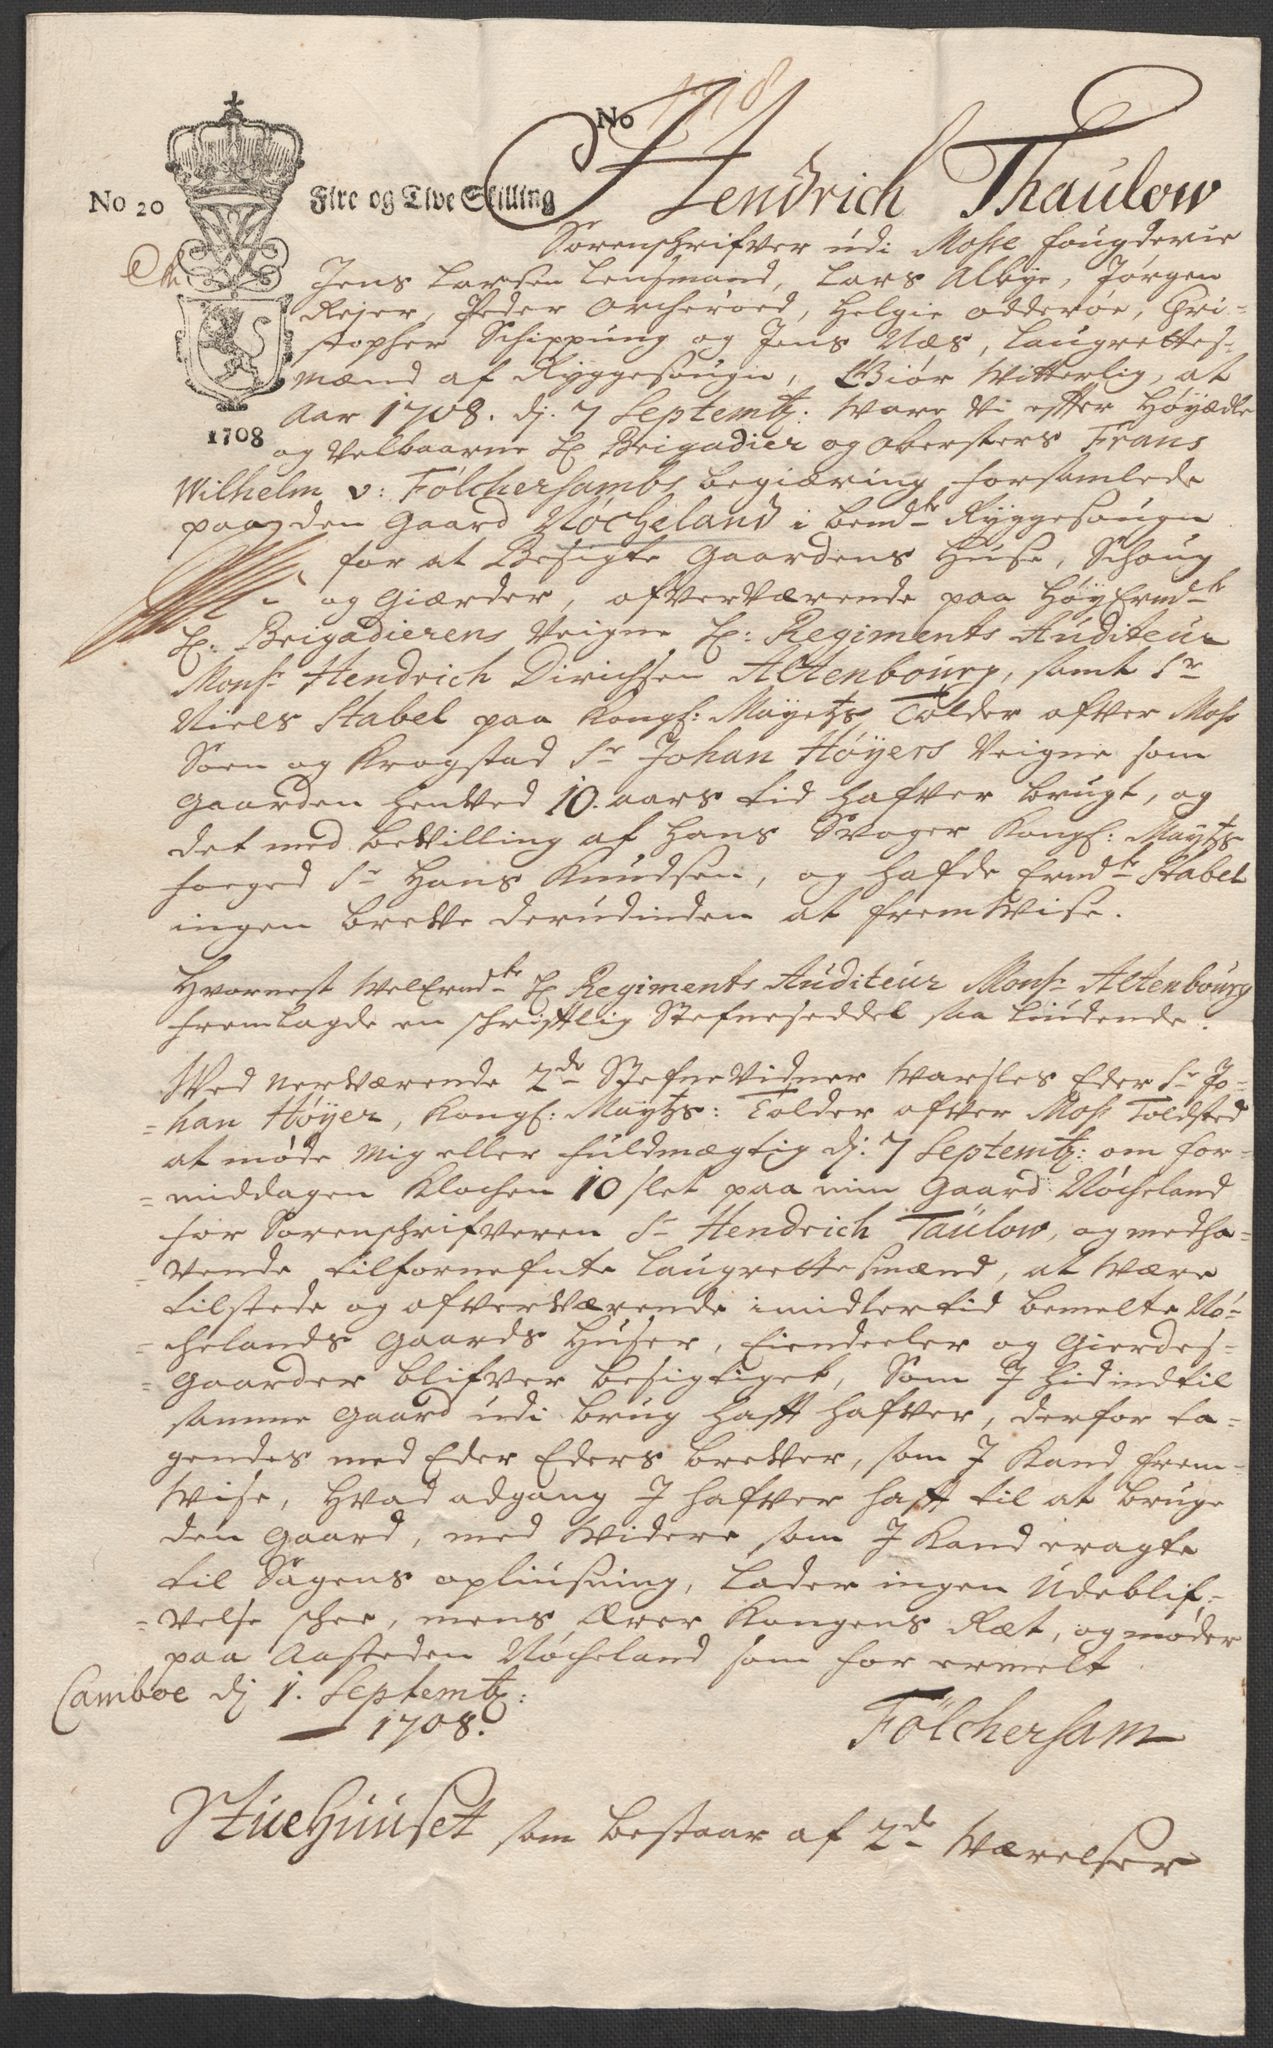 No 1718
No 20 Fire og Tive Skilling
Hendrich Thaulow
Sorenschrifver udi Mosse fougderie
Jens Larsen Lensmand, Lars Albye, Jørgen
Rejer, Peder Orcheröed, Helgie Odderöe, Chri-
stopher Schippung og Jens Næs, Laugrettes-
mænd af Ryggesougn, Giör Witterlig, at
Aar 1708. dj. 7 Septembr: Ware Vi effter Höyædle
1708
og Velbaarne H Brigadier og Obersters Frans
Wilhelm v: Fölchersambs begiæring forsamlede
paa den Gaard Nöcheland i bemdte Ryggesougn
for at Besigte Gaardens Huse, Schoug
og Giærder, ofverværende paa Höy Ermdte
H: Brigadierens Veigne H: Regiments Auditeur
Monsr Hendrich Dirichsen Altenbourg, samt Sr
Niels Stabel paa Kongl: Mayetzs Tolder ofver Moss
Soen og Krogstad Sr Johan Höyers Veigne som
Gaarden henved 10. aars tid hafver brugt, og
det med bevilling af hans Svoger Kongl: Maytzs
foeged Sr Hans Knudsen, og hafde Ermdte Stabel
ingen breve derudinden at fremWise.
Hvornest WelErmdte H Regiments Auditeur Monsr Altenbourg
fremlagde en schrifftlig Stefneseddel saa liudende.
Med nerværende 2de Stefne Vidner Warsles Eder Sr Jo-
-han Höyer, Kongl: Maytzs: Tolder ofver Moss Toldsted
at møde Mig eller fuldmægtig dj. 7 Septembr: om for-
-middagen Klochen 10 slet paa min Gaard Nöcheland
for Sorenschrifveren Sr Hendrich Taulow, og medha-
-vende tilfornefnte Laugrettesmænd, at Være
tilstede og ofverværende imidlertid bemelte Nö-
-chelands Gaards Huser, Eiendeeler og Gierdes-
-Gaarder blifver besigtiget, Som I hid indtil
samme Gaard udi brug hafft hafver, derfor ta-
gendes med Eder Eders brever, som I Kand frem-
Wise, hvad adgang I hafver hafft til at bruge
den Gaard, med Widere som I Kand eragte
til Sagens opliusning, Lader ingen Udeblif-
-velse schee, mens Ærer Kongens Ræt, og møder
paa Aasteden Nöcheland som for ermelt
Camboe dj 1. Septembr:
1708.
Fölchersam
StueHuuset som bestaar af 2de Værelser